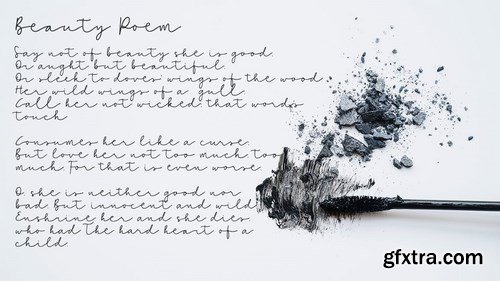 Beauty Poem
Say not of beauty she is good.
Or aught but beautiful.
Or sleek to doves' wings of the wood
Her wild wings of a gull.
Call her not wicked that word's
touch
Consumes her like a curse.
But love her not too much too
much. For that is even worse.
O she is neither good nor
bad But innocent and wild
Enshrine her and she dies
who had the hard heart of a
child
gfxtra.com